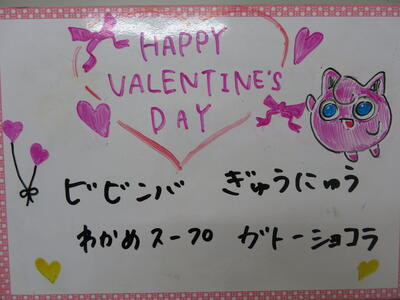 HAPPY
VALENTINE'S
DAY
ビビンバ ぎゅうにゅう
わかめスープ ガトーショコラ